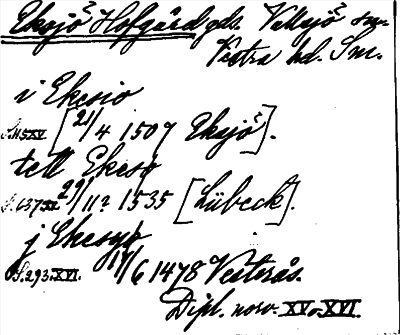 Eksjö Hofgård gds. Vallsjö sn.
Vestra hd. Sm.
i Ekesio
S.115 XV. [21/4 1507 Eksjö].
tell Ekesö
S.637 XV. 29/11? 1535 [Lübeck].
j Ekesyö
S.293. XVI. 17/6 1478 Vesterås.
Dipl. norv. XV o. XVI.